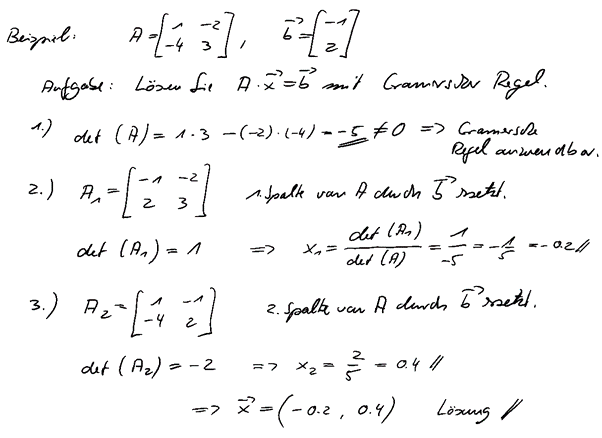 Beispiel: A = [1 -2; -4 3], b⃗ = [-1; 2]
Aufgabe: Lösen Sie A · x⃗ = b⃗ mit Cramerscher Regel.
1.) det (A) = 1 · 3 - (-2) · (-4) = -5 ≠ 0 => Cramersche
Regel anwendbar.
2.) A₁ = [-1 -2; 2 3] 1. Spalte von A durch b⃗ ersetzt.
det (A₁) = 1 => x₁ = det (A₁) / det (A) = 1/-5 = -1/5 = -0.2 //
3.) A₂ = [1 -1; -4 2] 2. Spalte von A durch b⃗ ersetzt.
det (A₂) = -2 => x₂ = 2/5 = 0.4 //
=> x⃗ = (-0.2, 0.4) Lösung //